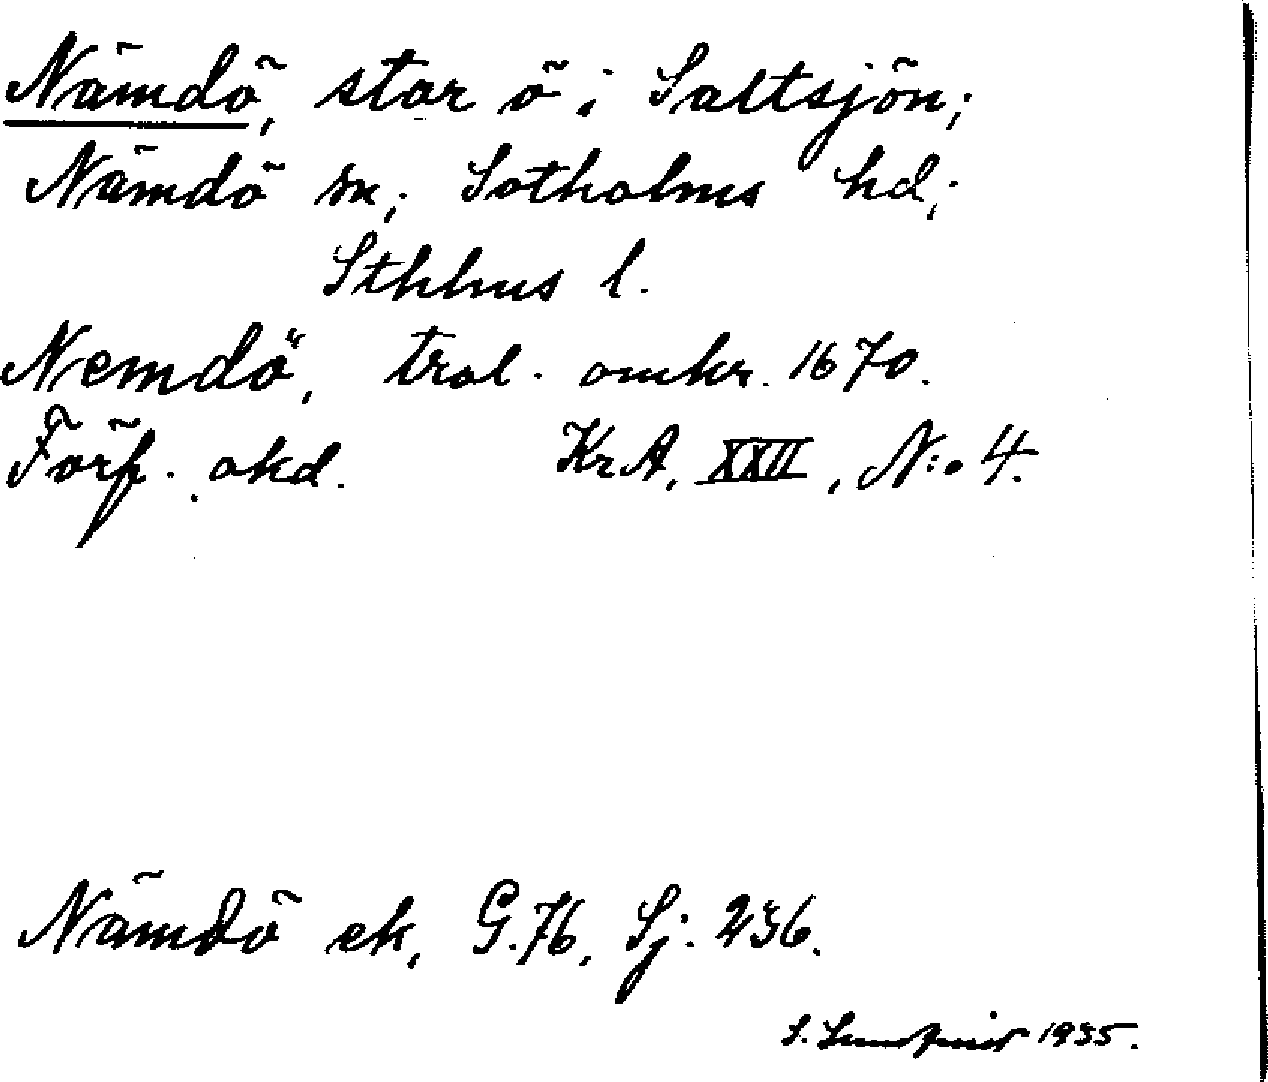 Nämdö, stor ö i Saltsjön;
Nämdö sn; Sotholms hd;
Sthlms l.
Nemdö, trol. omkr. 1670.
Förf. okd. KrA, XXII, N:o 4.
Nämdö ek, G.76, Sj. 236.
S. Lundqvist 1935.